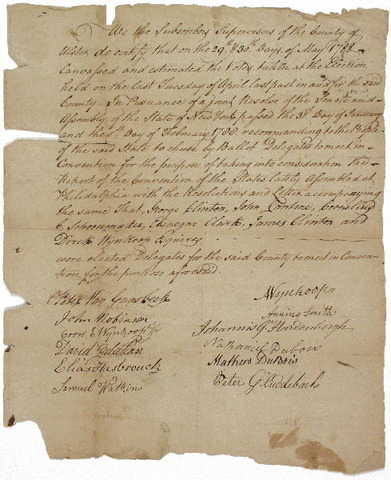 We the Subscribers Supervisors of the County of
Ulster do certify that on the 29th & 30th Days of May 1788
Canvassed and estimated the Votes taken at the Election
held on the last Tuesday of April last past in and for the said
County - In Pursuance of a joint Resolve of the Senate and
Assembly of the State of New York passed the 31st Day of January
and the 1st Day of February 1788 recommending to the People
of the said State to chuse by Ballot Delegates to meet in
Convention for the purpose of taking into consideration the
Report of the Convention of the States lately Assembled at
Philadelphia with the Resolutions and Letter accompanying
the same That, George Clinton, John Cantine, Cornelius
C Schoonmaker, Ebenezer Clark, James Clinton and
Dirck Wynkoop Esquires
were elected Delegates for the said County to meet in Conven-
tion for the purpose aforesaid
Peter Van Gaasbeek
John Robinson
Corn E Wynkoop Jr
David
Elias Hasbrouck
Samuel Watkins
Wynkoop
Smith
Johannis G Hardenbergh
Nathaniel Dubois
Mathew DuBois
Peter Cuddeback